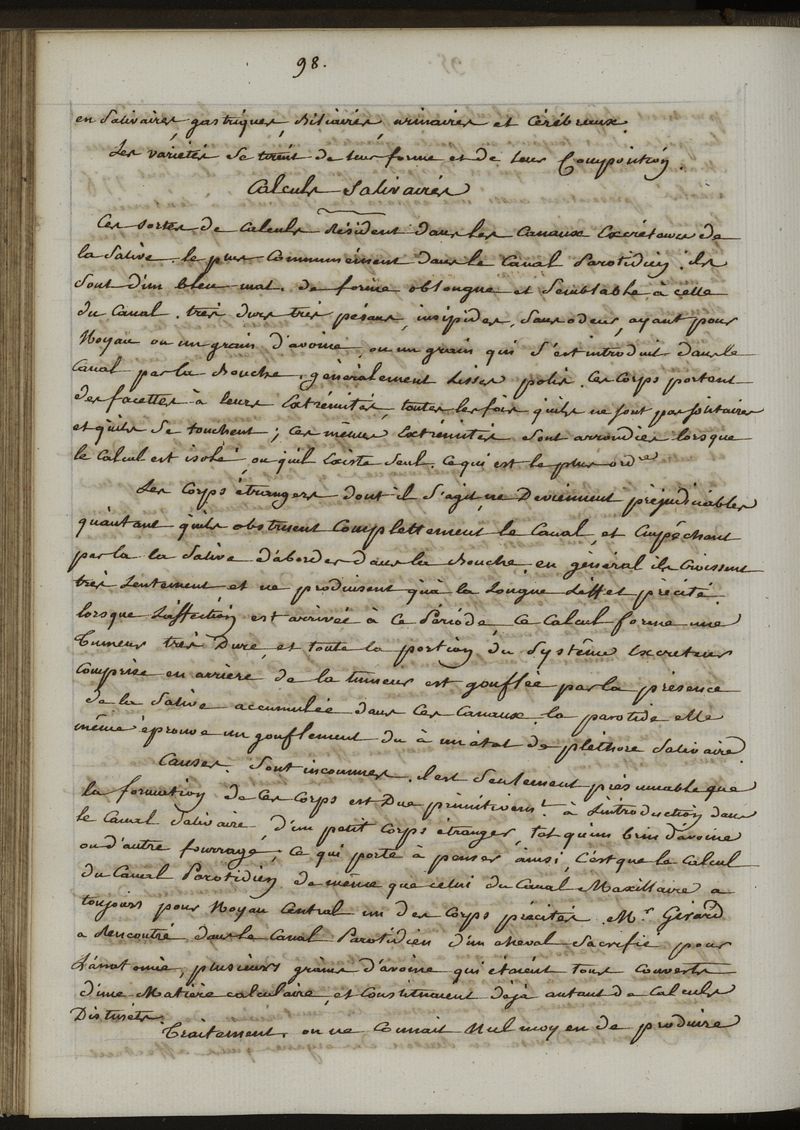 98.
en Salivaires, gastriques, Biliaires, urinaires et Cérébreux.
Les variétés se tirent de leur forme et de leur Composition.
Calculs Salivaires
Ces sortes de Calculs Résident dans les Canaux Excréteurs de
la Salive, le plus Communément dans le Canal Parotidien, ils
Sont d'un bleu mat, de forme oblongue et Semblable à celle
du Canal, très durs très pésans, insipides, Sans odeur, ayant pour
Noyau ou un grain d'avoine, ou un grain qui S'est introduit dans le
Canal par la Bouche, généralement Lisses polis, Ces Corps portent
des facettes à leurs Extrémités, toutes les fois qu'ils ne sont pas Solitaires
et qu'ils Se touchent; Ces mêmes Extrémités Sont arrondies lorsque
le Calcul est isolé, ou qu'il Existe Seul. Ce qui est le plus ordre
Les Corps étrangers dont il S'agit, ne Deviennent préjudiciables
qu'autant qu'ils obstruent Complettement le Canal, et Empêchent
par là la Salive d'aborder dans la Bouche, en général ils Croissent
très Lentement, et ne produisent qu'à la Longue L'effet précité.
lorsque L'affection est arrivée à Ce Période, Ce Calcul forme une
Tumeur très Dure, et toute la portion du Système Excréteur
Comprise en arrière de la tumeur est gonflée par la présence
de la Salive accumulée dans Ces Canaux, la parotide elle
même éprouve un gonflement du à un état de pléthore Salivaire.
Causes. Sont inconnues, il est Seulement présumable que
la formation de Ces Corps est Due primitivemt à L'introduction dans
le Canal Salivaire, d'un petit Corps étranger, tel qu'un brin d'avoine
ou d'autre fourrage; Ce qui porte à penser ainsi, C'est que le Calcul
du Canal Parotidien de même que celui du Canal Maxillaire a
toujours pour Noyau Central un des Corps précités. Mr. Girard
a Rencontré dans le Canal Parotidien d'un cheval Sacrifié pour
L'anatomie, plusieurs grains d'avoine qui étaient tous Couverts
d'une Matière calculaire, et Constituaient déjà autant de Calculs
Distincts.
Traitement, on ne Connait Nul moyen de produire